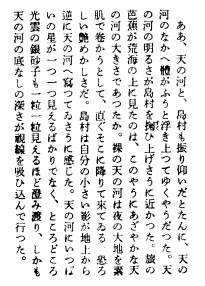 ああ、天の河と、島村も振り仰いだとたんに、天
の河のなかへ體がふうと浮き上つてゆくやうだつた。天
の河の明るさが島村を掬ひ上げさうに近かつた。旅の
芭蕉が荒海の上に見たのは、このやうにあざやかな天
の河の大きさであつたか。裸の天の河は夜の大地を素
肌で巻かうとして、直ぐそこに降りて來てゐる。恐ろ
しい艶めかしさだ。島村は自分の小さい影が地上から
逆に天の河へ寫つてゐさうに感じた。天の河にいつぱ
いの星が一つ一つ見えるばかりでなく、ところどころ
光雲の銀砂子も一粒一粒見えるほど澄み渡り、しかも
天の河の底なしの深さが視線を吸ひ込んで行つた。